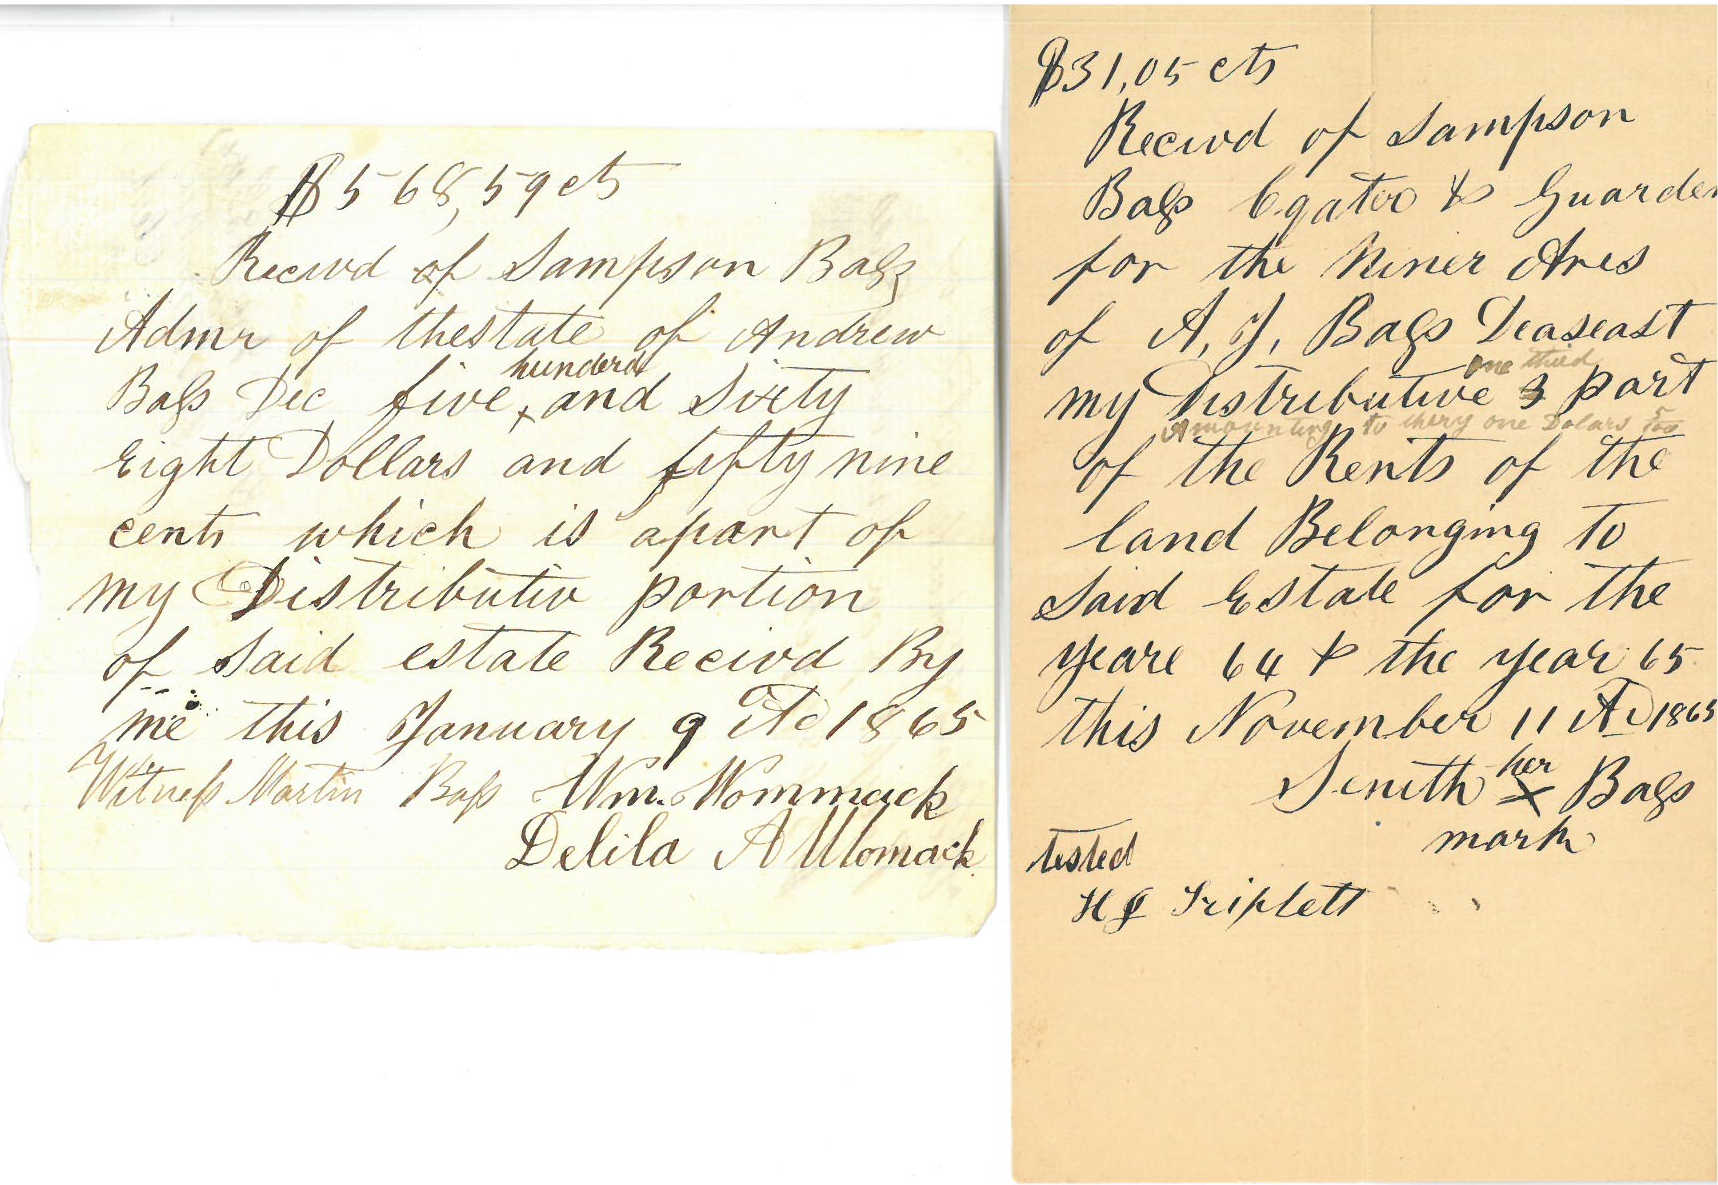 $568,59 cts
Recivd of Sampson Bass
Admr of thestate of Andrew
hunderd
Bass Dec five x and Sixty
Eight Dollars and fifty nine
cents which is apart of
my Distributiv portion
of Said estate Recivd By
me this January 9 AD 1865
Witness Martin Bass Wm. Wommack
Delila A Womack
$31,05 cts
Recivd of Sampson
Bass Exqator & Guarden
for the Miner Ares
of A, J, Bass Deaseast
one third
my Distributive 3 part
Amounting to thery one Dolars 5/100
of the Rents of the
land Belonging to
Said Estate for the
yeare 64 & the year 65
this November 11 AD 1865
her
Senith X Bass
mark
tested
H J Triplett